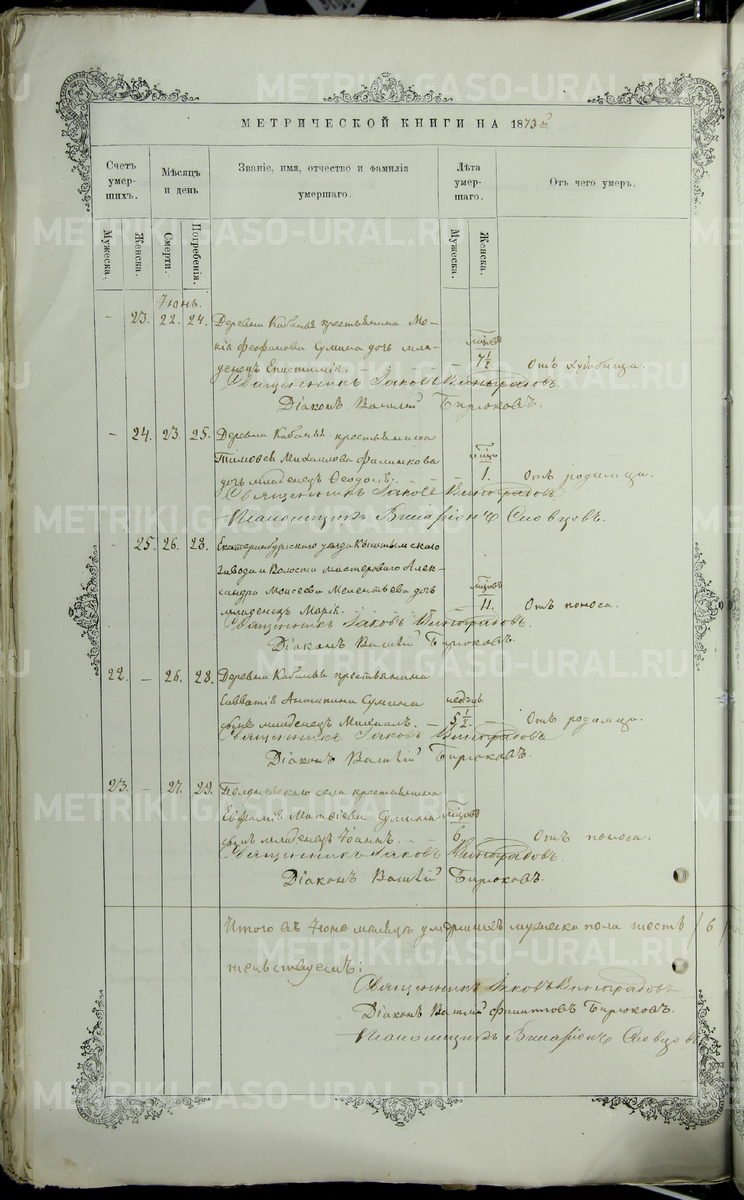 METRIKI.GASO-URAL.RU
МЕТРИЧЕСКОЙ КНИГИ НА 1873й
Счетъ умер-шихъ.
Мѣсяцъ и день
Званіе, имя, отчество и фамилія умершаго.
Лѣта умер-шаго.
Отъ чего умеръ.
Мужеска.
Женска.
Смерти.
Погребенія.
Мужеска.
Женска.
Іюнь.
– 23. 22. 24. Деревни Кабанья крестьянина Мо-
кія Феофанова Сумина дочь мла- мѣсяцовъ
денецъ Епистимія. 7½ Отъ худобища.
Священникъ Іаковъ Виноградовъ.
Діаконъ Василій Бирюковъ.
– 24. 23. 25. Деревни Кабаньѣ крестьянина
Тимоѳея Михаилова Филинкова
дочь младенецъ Ѳеодосія. 1. Отъ родимца.
Священникъ Іаковъ Виноградовъ
Псаломщикъ Виларіонъ Словцовъ.
– 25. 26. 28. Екатеринбургскаго уѣзда Кыштымскаго
завода и Волости мастероваго Алек-
сандра Моисеева Мелентьева дочь мѣсяцовъ
младенецъ Марія. 11. Отъ поноса.
Священникъ Іаковъ Виноградовъ.
Діаконъ Василій Бирюковъ.
22. – 26. 28. Деревни Кабаньѣ крестьянина
Савватія Антипина Сумина недѣль
сынъ младенецъ Михаилъ. – 5½. – Отъ родимца.
Священникъ Іаковъ Виноградовъ
Діаконъ Василій Бирюковъ.
23. – 27. 29. Полдневскаго села крестьянина
Евфимія Матвіева Сумина мѣсяцовъ
сынъ младенецъ Іоаннъ. 6. – Отъ поноса.
Священникъ Іаковъ Виноградовъ.
Діаконъ Василій Бирюковъ.
Итого въ Іюнѣ мѣсяцѣ умершихъ мужеска пола шесть / 6 /
Священникъ Іаковъ Виноградовъ
Діаконъ Василій Филиповъ Бирюковъ.
Псаломщикъ Виларіонъ Словцовъ